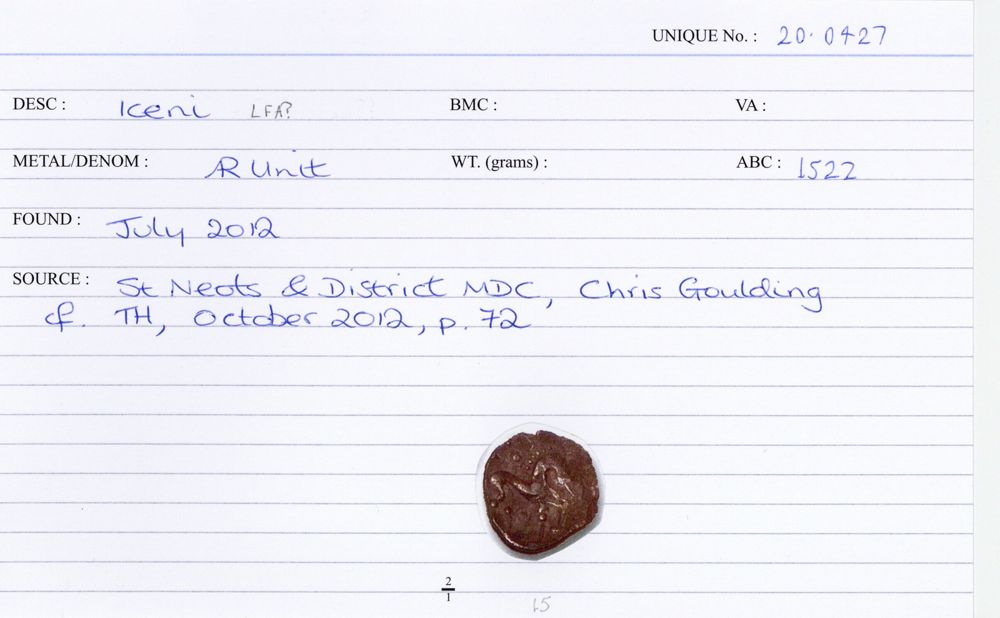 UNIQUE No. : 20. 0427
DESC : Iceni LFA? BMC : VA :
METAL/DENOM : ÆR Unit WT. (grams) : ABC : 1522
FOUND : July 2012
SOURCE : St Neots & District MDC, Chris Goulding
cf. TH, October 2012, p. 72
2
1
15